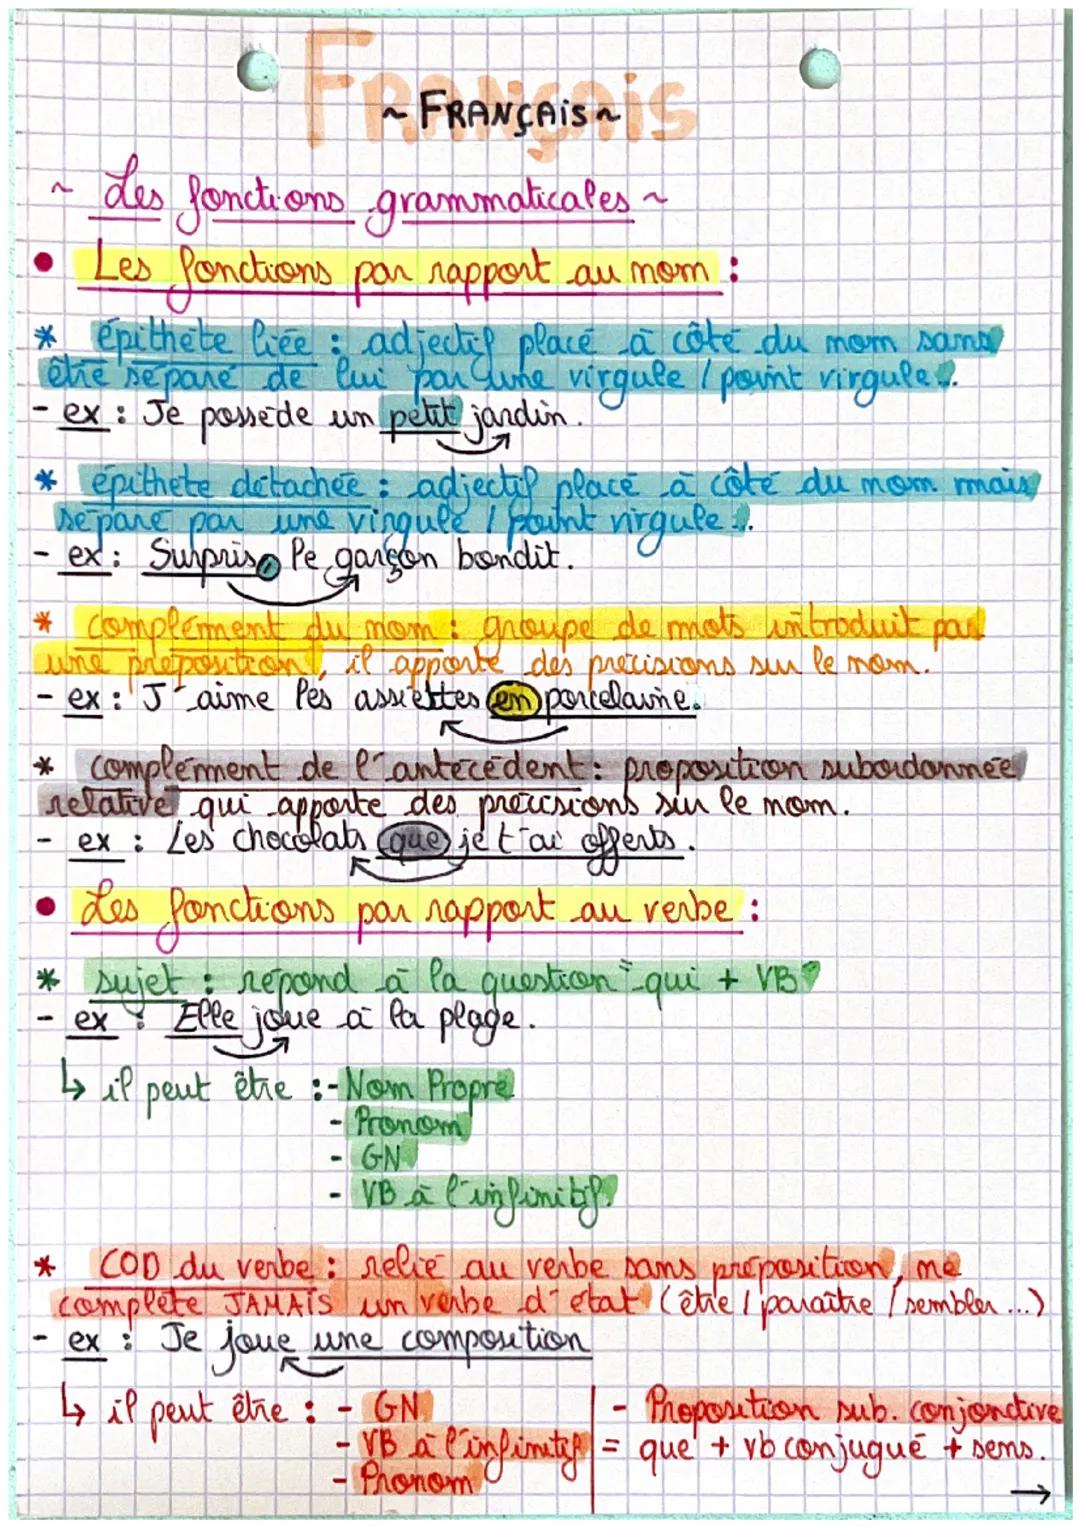 Français
~ FRANÇAis ~
~ Les fonctions grammaticales ~
• Les fonctions par rapport au nom :
* épithète liée : adjectif placé à côté du nom sans
être séparé de lui par une virgule / point virgule...
- ex : Je possède un petit jardin.
* épithète détachée : adjectif placé à côté du nom mais
séparé par une virgule / point virgule...
- ex : Surpris, le garçon bondit.
* complément du nom : groupe de mots introduit par
une préposition, il apporte des précisions sur le nom.
- ex : J'aime les assiettes en porcelaine.
* complément de l'antécédent : proposition subordonnée
relative qui apporte des précisions sur le nom.
- ex : Les chocolats que je t'ai offerts.
• Les fonctions par rapport au verbe :
* sujet : répond à la question "qui + VB"
- ex : Elle joue à la plage.
↳ il peut être : - Nom Propre
- Pronom
- GN
- VB à l'infinitif.
* COD du verbe : relié au verbe sans préposition, ne
complète JAMAIS un verbe d'état (être / paraître / sembler ...)
- ex : Je joue une composition
↳ il peut être : - GN | - Proposition sub. conjonctive
- VB à l'infinitif | = que + vb conjugué + sens.
- Pronom →